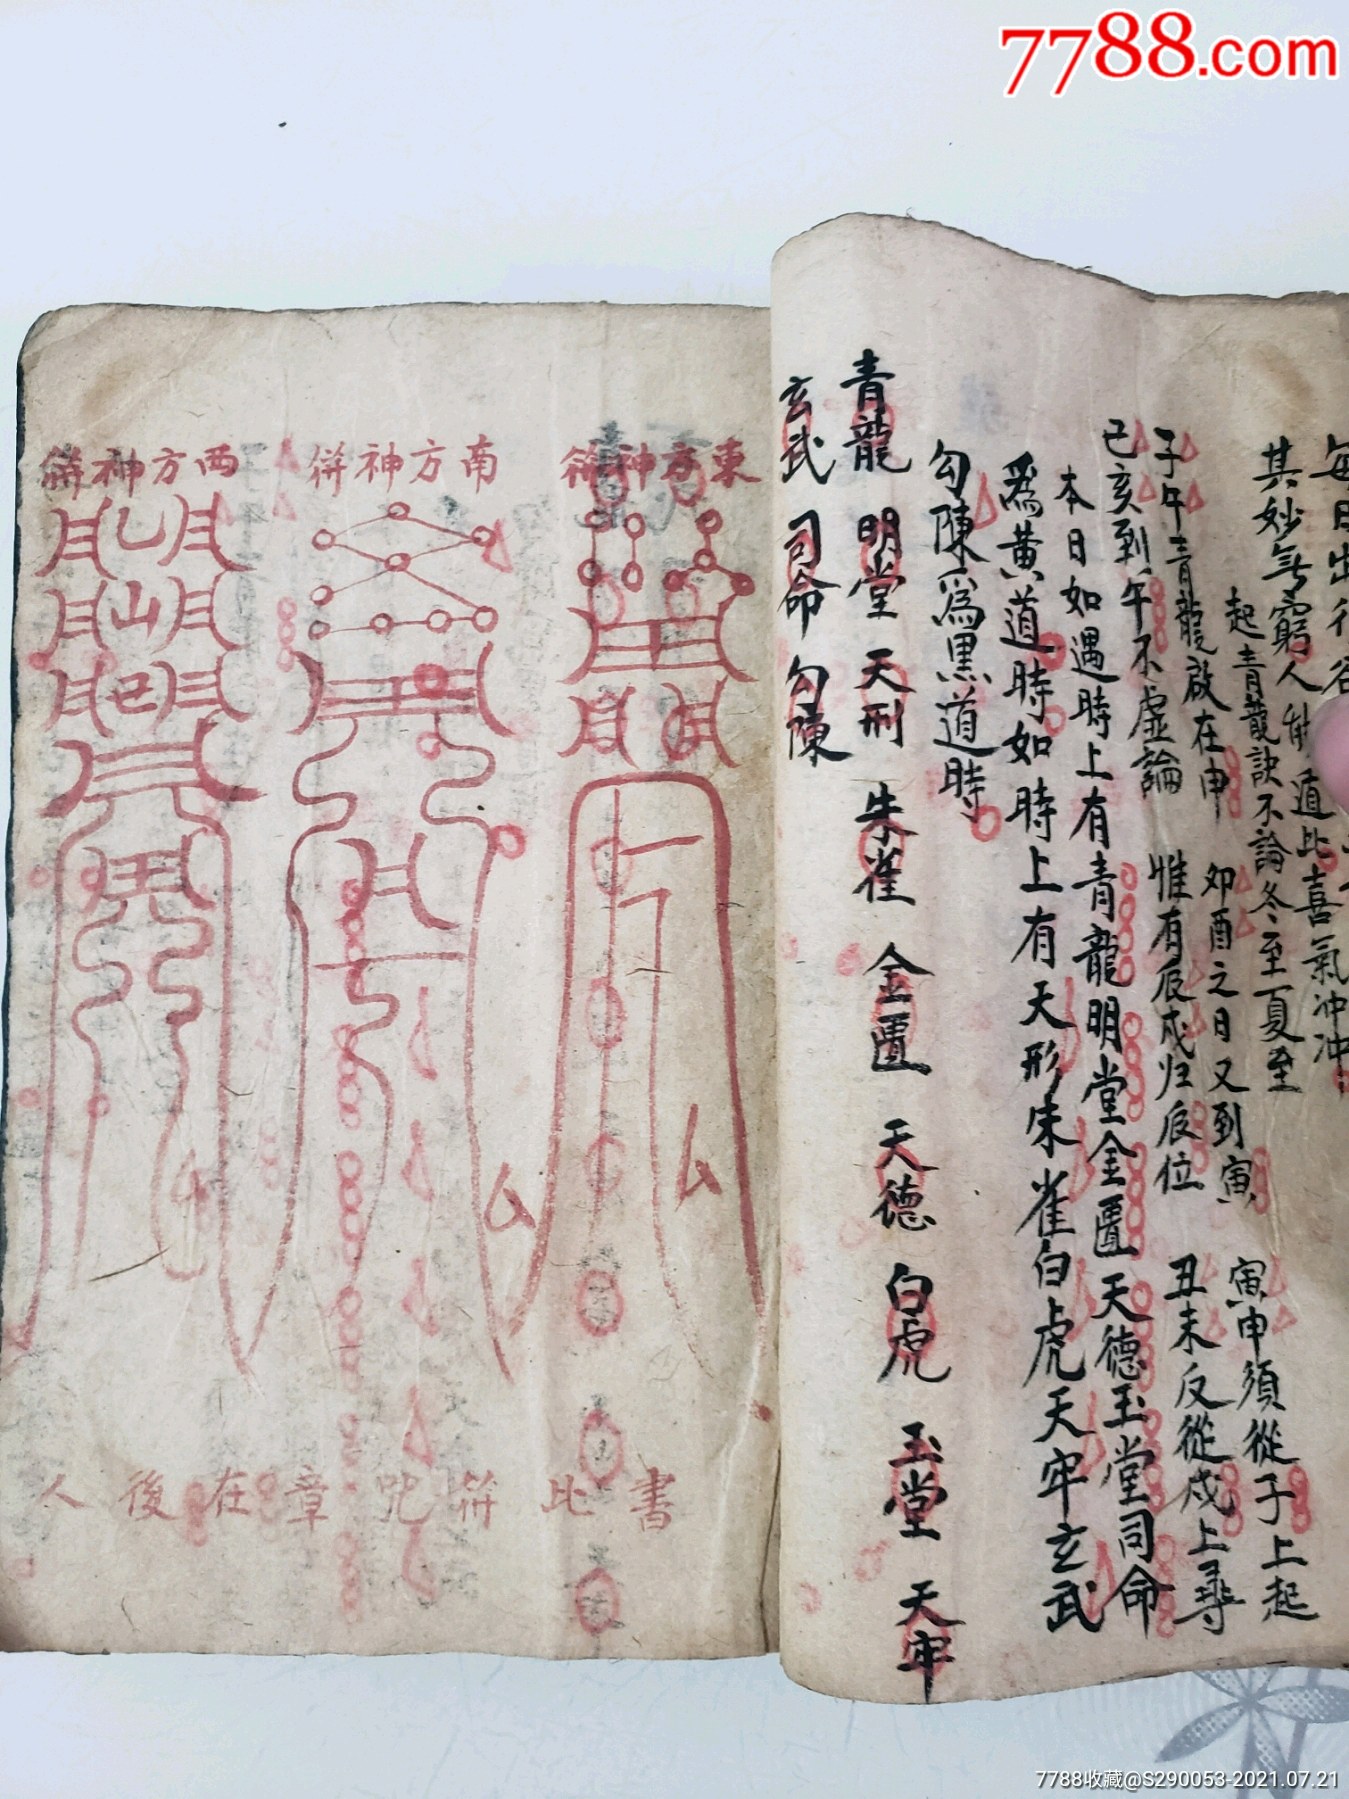 7788.com
每日出行
其妙無窮人能道此喜氣冲冲
起青龍訣不論冬至夏至
寅申須從子上起
子午青龍啟在申
卯酉之日又到寅
丑未反從戌上尋
己亥到午不虛論
惟有辰戌归辰位
本日如遇時上有青龍明堂金匱天德玉堂司命
為黃道時如時上有天形朱雀白虎天牢玄武
勾陳為黑道時
青龍 明堂 天刑 朱雀 金匱 天德 白虎 玉堂 天牢
玄武 司命 勾陳
東方神符
南方神符
西方神符
書此符咒章在後人
7788收藏@S290053-2021.07.21